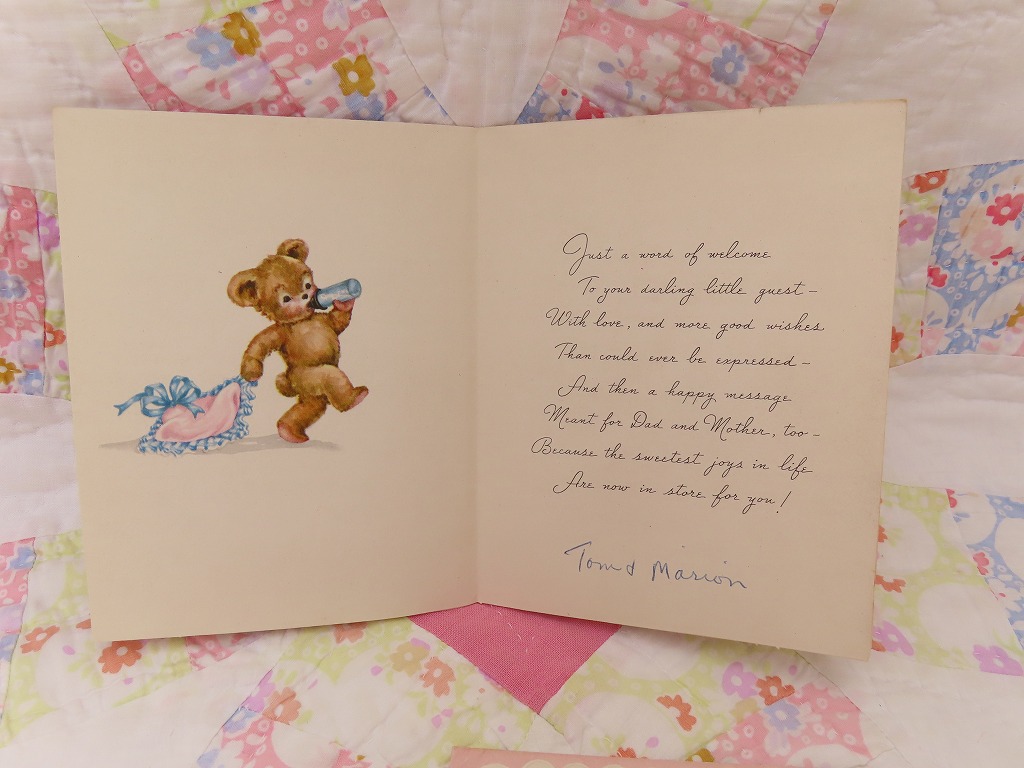 Just a word of welcome
To your darling little guest –
With love, and more good wishes
Than could ever be expressed –
And then a happy message
Meant for Dad and Mother, too –
Because the sweetest joys in life
Are now in store for you!
Tom & Marion